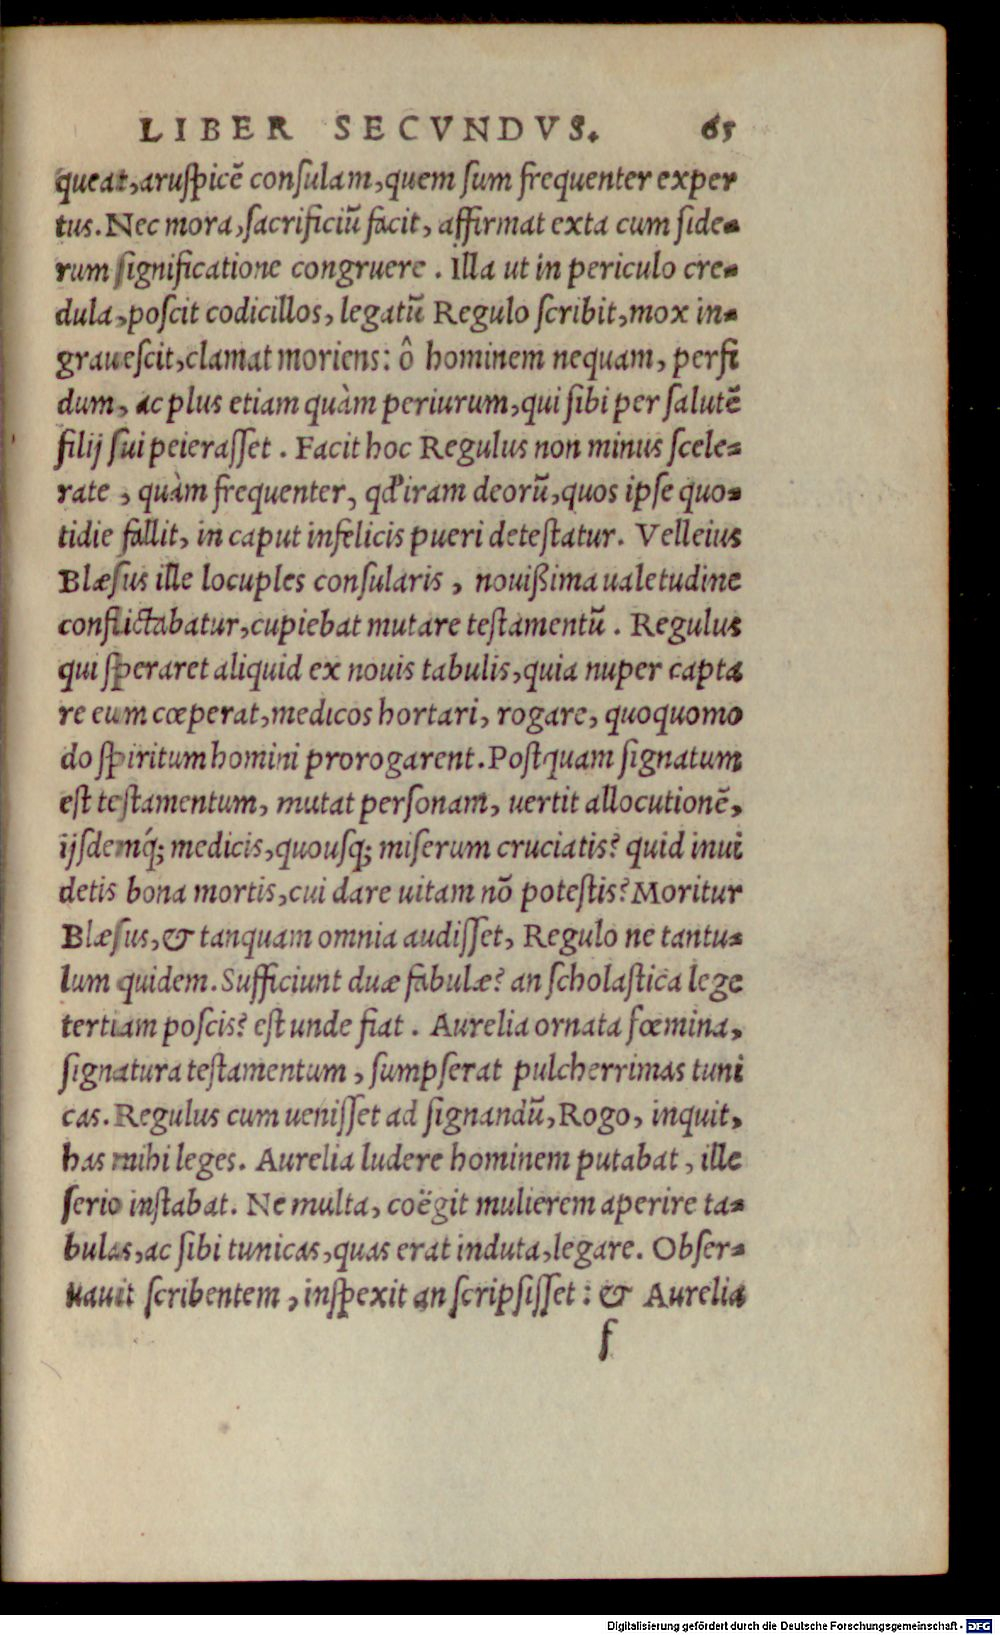 LIBER SECVNDVS. 65
queat, aruſpicē conſulam, quem ſum frequenter exper
tus. Nec mora, ſacrificiū facit, affirmat exta cum ſide-
rum ſignificatione congruere. Illa ut in periculo cre-
dula, poſcit codicillos, legatū Regulo ſcribit, mox in-
graueſcit, clamat moriens: ô hominem nequam, perfi
dum, ac plus etiam quàm periurum, qui ſibi per ſalutē
filij ſui peieraſſet. Facit hoc Regulus non minus ſcele-
rate, quàm frequenter, qd' iram deorū, quos ipſe quo-
tidie fallit, in caput infelicis pueri deteſtatur. Velleius
Blæſus ille locuples conſularis, nouißima ualetudine
conflictabatur, cupiebat mutare teſtamentū. Regulus
qui ſperaret aliquid ex nouis tabulis, quia nuper capta
re eum cœperat, medicos hortari, rogare, quoquomo
do ſpiritum homini prorogarent. Poſtquam ſignatum
eſt teſtamentum, mutat perſonam, uertit allocutionē,
ijſdemq́; medicis, quouſq; miſerum cruciatis? quid inui
detis bona mortis, cui dare uitam nō poteſtis? Moritur
Blæſus, & tanquam omnia audiſſet, Regulo ne tantu-
lum quidem. Sufficiunt duæ fabulæ? an ſcholaſtica lege
tertiam poſcis? eſt unde fiat. Aurelia ornata fœmina,
ſignatura teſtamentum, ſumpſerat pulcherrimas tuni
cas. Regulus cum ueniſſet ad ſignandū, Rogo, inquit,
has mihi leges. Aurelia ludere hominem putabat, ille
ſerio inſtabat. Ne multa, coëgit mulierem aperire ta-
bulas, ac ſibi tunicas, quas erat induta, legare. Obſer-
uauit ſcribentem, inſpexit an ſcripſiſſet: & Aurelia
f
Digitalisierung gefördert durch die Deutsche Forschungsgemeinschaft - DFG